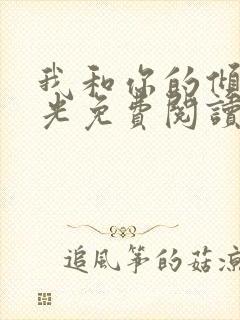 我和你的傾
光免費閱讀
追風箏的菇涼